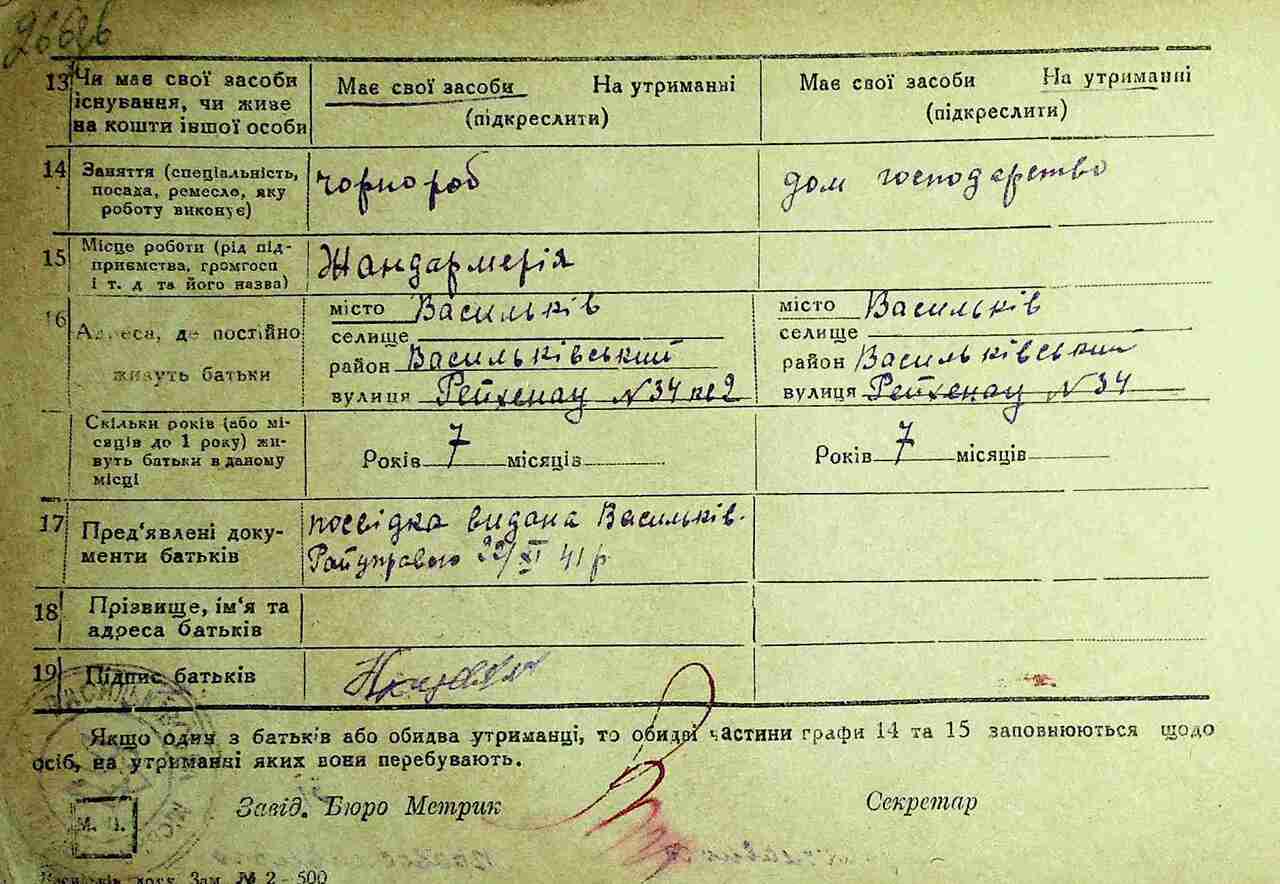 26626
13 Чи має свої засоби Має свої засоби На утриманні Має свої засоби На утриманні
існування, чи живе (підкреслити) (підкреслити)
на кошти іншої особи
14 Заняття (спеціальність, чорнороб дом господарство
посада, ремесло, яку
роботу виконує)
15 Місце роботи (рід під- Жандармерія
приємства, громгосп
і т. д та його назва)
16 Адреса, де постійно місто Васильків місто Васильків
селище селище
живуть батьки район Васильківський район Васильківський
вулиця Рейхенау №34 кв2 вулиця Рейхенау №34
Скільки років (або мі-
сяців до 1 року) жи-
вуть батьки в даному Років 7 місяців Років 7 місяців
місці
17 Пред‘явлені доку- посвідка видана Васильків.
менти батьків Райуправою 22/XI 41 р
18 Прізвище, ім‘я та
адреса батьків
19 Підпис батьків
Якщо один з батьків або обидва утриманці, то обидві частини графи 14 та 15 заповнюються щодо
осіб, на утриманні яких вони перебувають.
Завід. Бюро Метрик Секретар
М. П.
друк. Зам. № 2 - 500